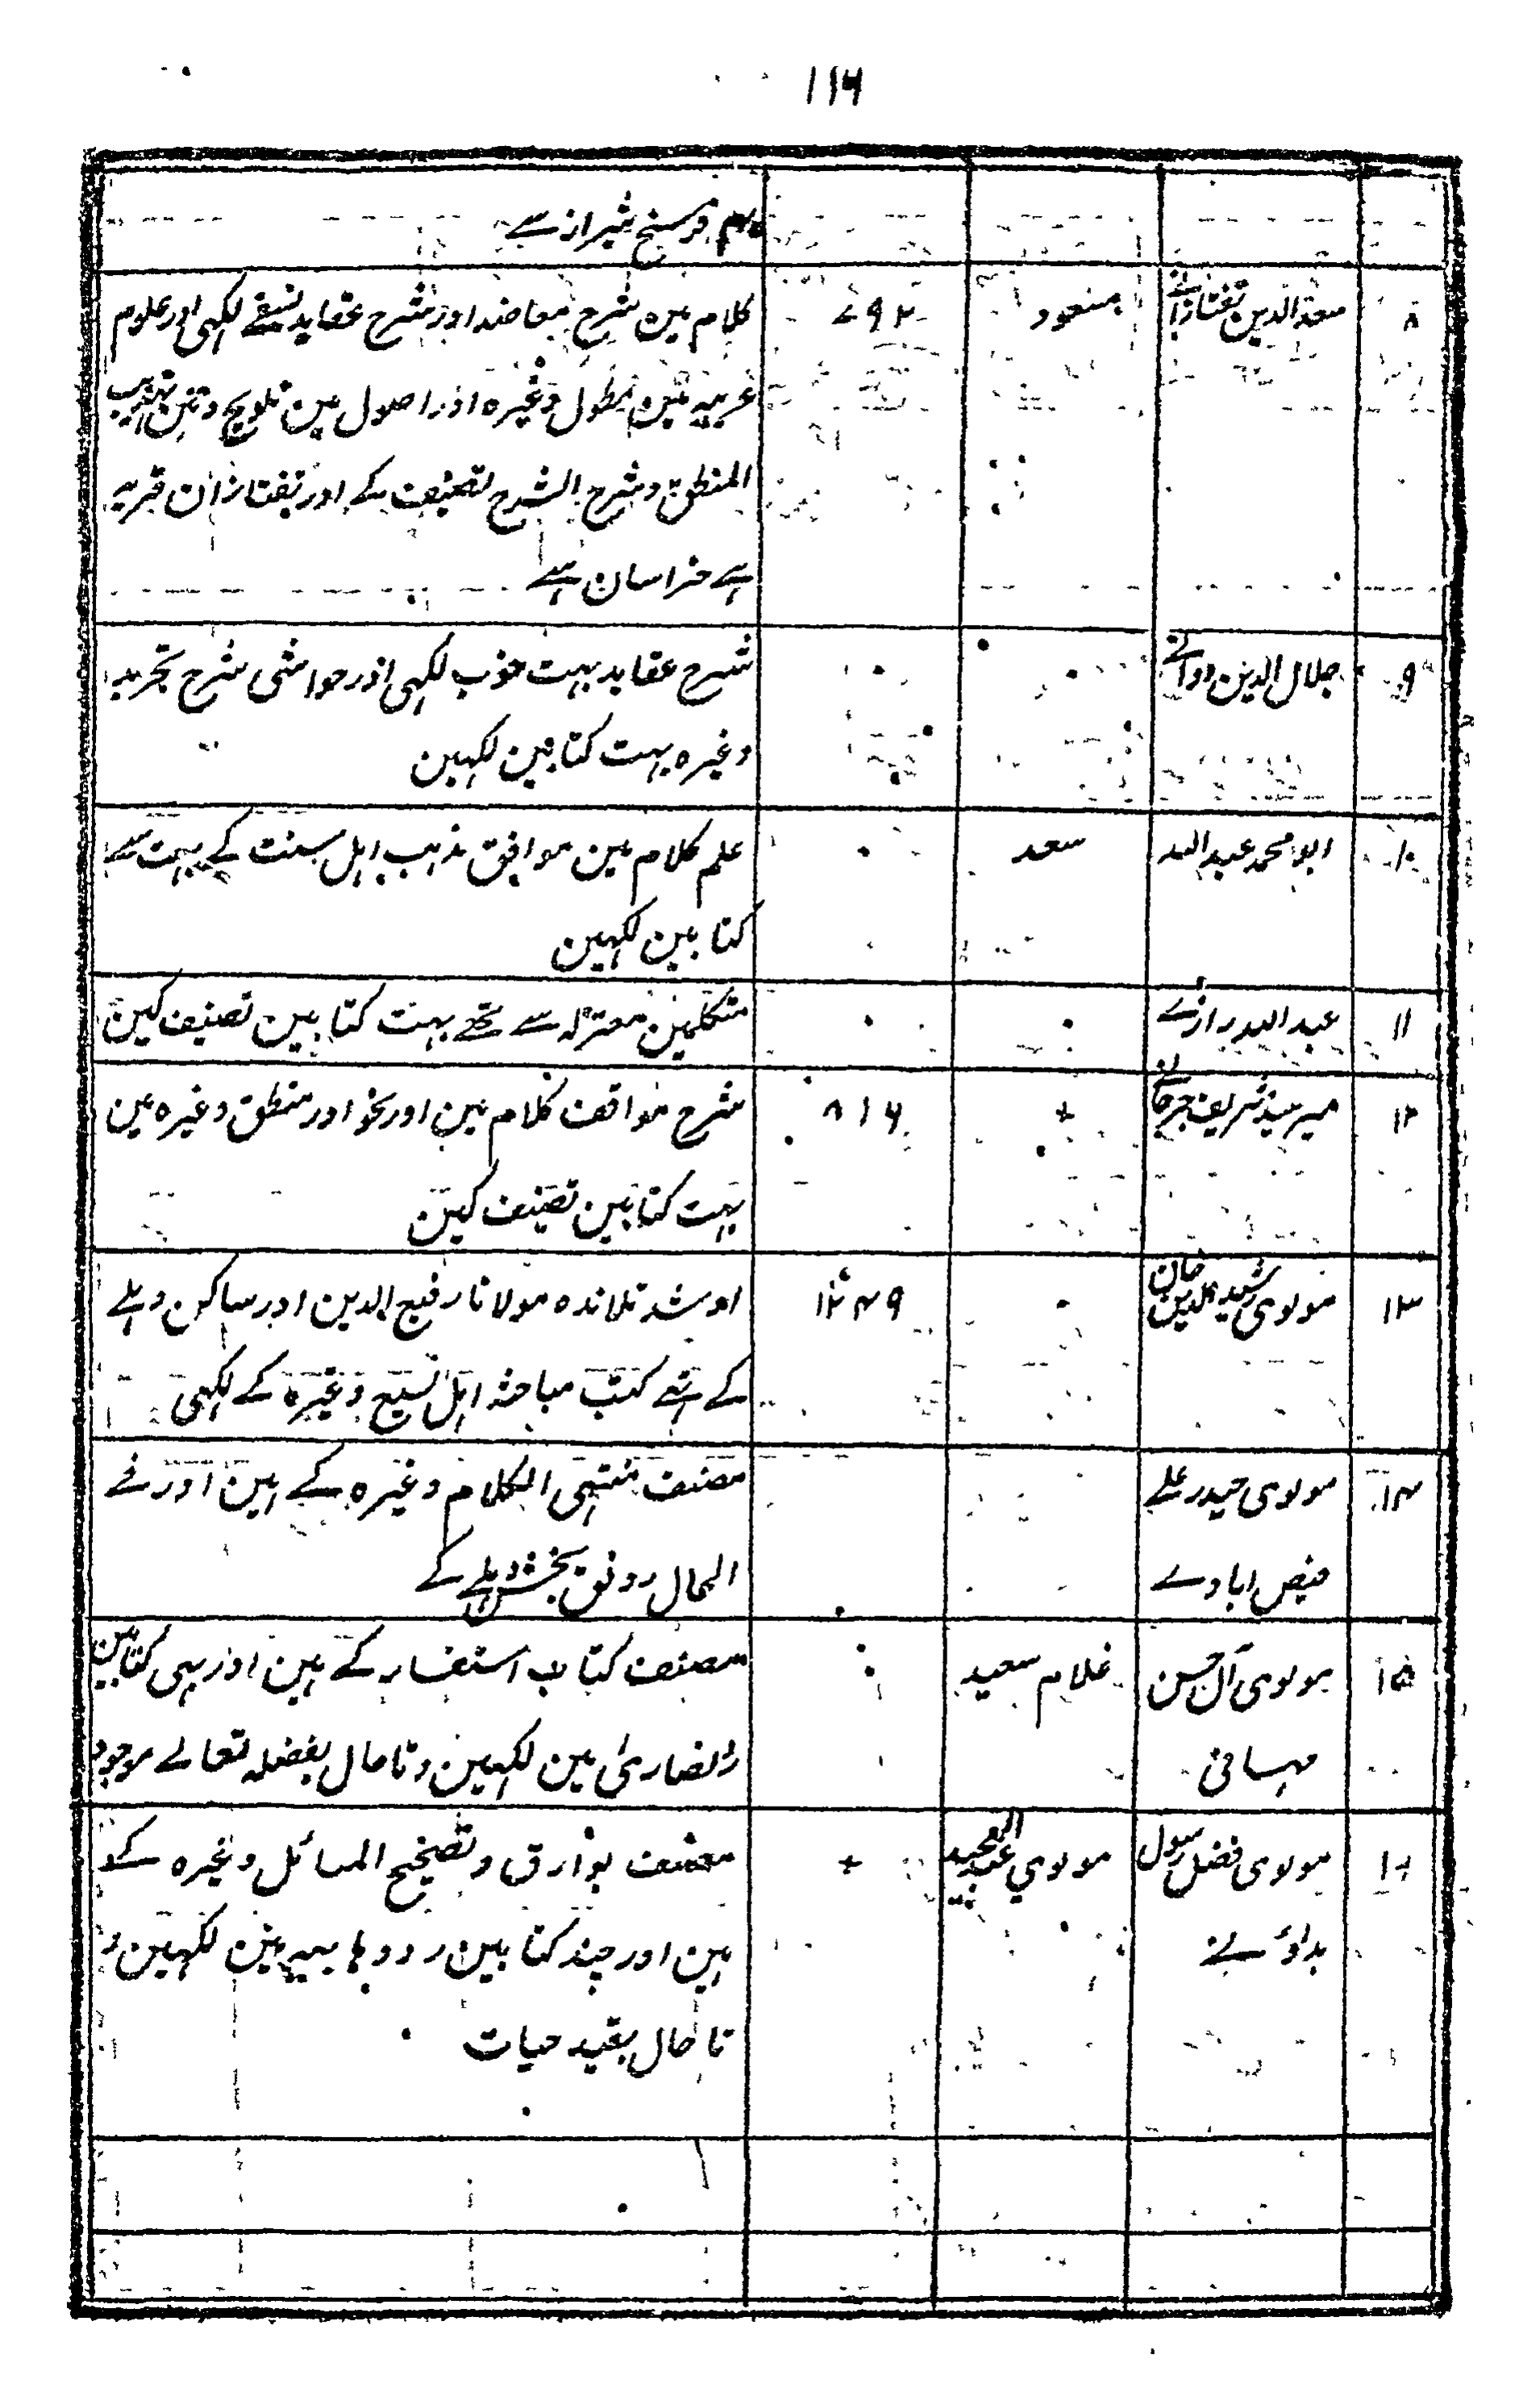 ۱۱۶
فرسنخ شیراز سے
۸ سعد الدین تفتازانے مسعود ۷۹۲ کلام مین شرح مقاصد اور شرح عقاید نسفے لکہی اور علوم
عربیہ مین مطول وغیرہ اور اصول مین تلویح و متن تہذیب
المنطق و شرح الشرح تصنیف کے اور تفتازان قریہ
ہے خراسان سے
۹ جلال الدین دوانے شرح عقاید بہت خوب لکہی اور حواشی شرح تجرید
وغیرہ بہت کتابین لکہین
۱۰ ابو محمد عبد اللہ سعد علم کلام مین موافق مذہب اہل سنت کے بہت سے
کتابین لکہین
۱۱ عبد اللہ رازے متکلمین معتزلہ سے تہے بہت کتابین تصنیف کین
۱۲ میر سید شریف جرجانے + ۸۱۶ شرح مواقف کلام مین اور نحو اور منطق وغیرہ مین
بہت کتابین تصنیف کین
۱۳ مولوی رشید الدین خان ۱۲۴۹ ارشد تلامذہ مولانا رفیع الدین اور ساکن دہلے
کے تہے کتب مباحثہ اہل تشیع وغیرہ کے لکہی
۱۴ مولوی حیدر علے مصنف منتہی الکلام وغیرہ کے ہین اور فے
فیض ابادے الحال رونق بخش دہلے کے
۱۵ مولوی آل حسن غلام سعید مصنف کتاب استفسار کے ہین اور بہی کتابین
مہسانی رد نصاریٰ مین لکہین و تا حال بفضلہ تعالے موجود
۱۶ مولوی فضل رسول مولوی عبد المجید + مصنف بوارق و تصحیح المسائل وغیرہ کے
بداؤنے ہین اور چند کتابین رد وہابیہ مین لکہین و
تا حال بقید حیات